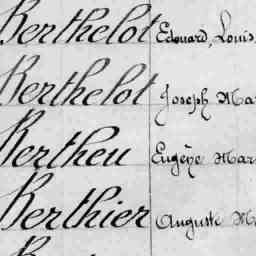 Berthelot Edouard, Louis,
Berthelot Joseph Ma
Bertheu Eugène Mar
Berthier Auguste M